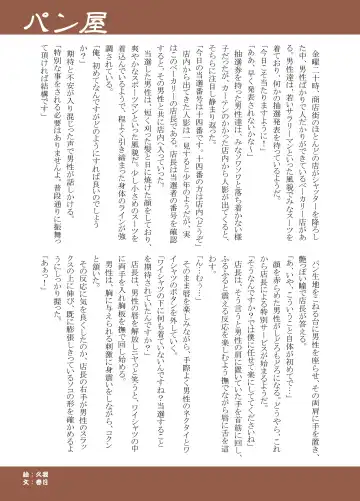 パン屋
金曜二十時、商店街のほとんどの店がシャッターを降ろし
た中、男性ばかりで人だかりができているベーカリー店があ
る。男性達は、皆いサラリーマンといった風貌でみなスーツを
着ており、何かの抽選発表を待っている。
「今日こそ当たりますように！」
「ああ、早く発表されないかな」
抽選券を持った男性達はみなソワソワと落ち着かない様
子だったが、カーテンのかかった店内から人影が出てくると、
そちらに注目し静まり返った。
「今日の当選番号は十四番です。十四番の方は店内へどうぞ」
店内から出てきた人影は一見すると少年のようだが、実
はこのベーカリーの店長である。店長は当選者の番号を確認
すると、その男性と共に店内へ入っていった。
当選した男性は、短く刈った髪と日に焼けた顔をしており、
爽やかなスポーツマンといった風貌だ。少し小さめのスーツを
着込んでいるようで、程よく引き締まった身体のラインが強
調されている。
「俺、初めてなんですがどのようにすれば良いのでしょう
か？」
期待と不安が入り混じった声で男性が話しかける。
「特別な事をされる必要はありませんよ。普段通りに振舞っ
て頂ければ結構です」
パン生地をこねる台に男性を座らせ、その両肩に手を置き、
艶っぽい瞳で店長が答える。
「あ、いや、こういうこと自体が初めてで…！」
顔を赤らめた男性がしどろもどろになる。どうやら、これ
から店長による特別サービスが始まるようだ。
「そうなんですか？では僕に任せて楽にしててくださいね」
店長は、そう言うと男性の肩に置いていた手を首筋に回し、
ふるふると震える反応を楽しむよう撫でながら唇に舌を這
わせる。
「んむっ…！」
そのまま唇を楽しみながら、手際よく男性のネクタイとワ
イシャツのボタンを外していく。
「ワイシャツの下に何も着てないんですね？当選すること
を期待されていたんですか？」
店長は、男性の唇を解放しニヤッと笑うと、ワイシャツの中
に両手を入れ胸板を撫で回し始める。
男性は、胸に与えられる刺激に身震いをしながら、コクン
と頷いた。
その反応に気を良くしたのか、店長の右手が男性のスラッ
クスの上に伸び、既に膨張しきっているソコの形を確かめるよ
うにしっかり握った。
「ああっ！」
絵：久我
文：春日